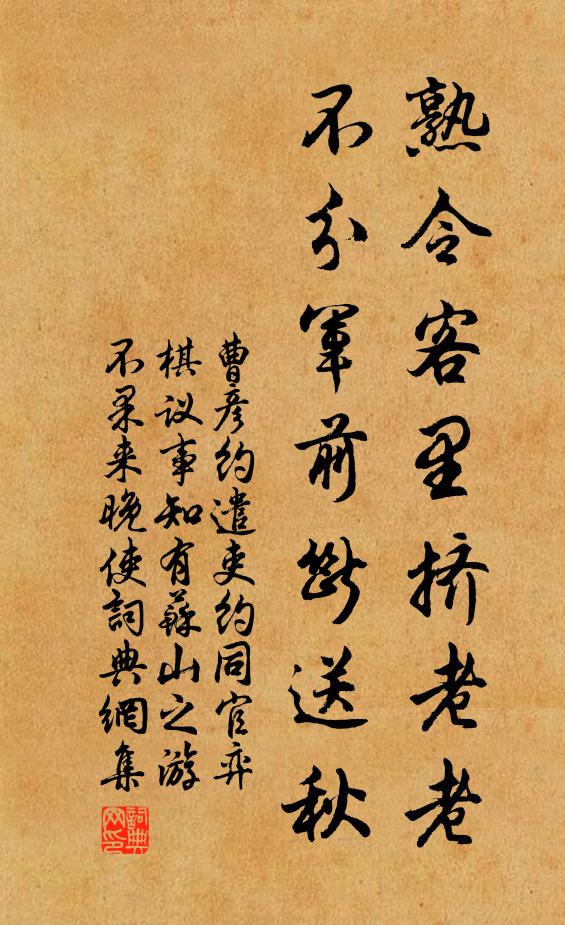 熟令客里挤老老
不分军前断送秋
曹彦约遣吏约同官弈
棋议事知有苏山之游
不果来晚使詞典網集
詞典网印